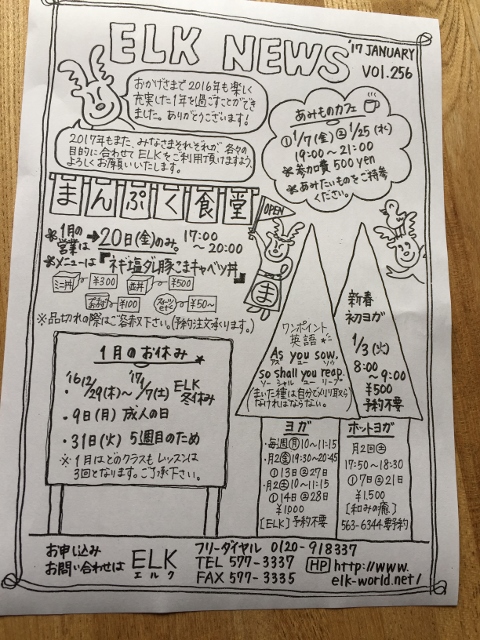 ELK NEWS
'17 JANUARY
VOl.256
おかげさまで2016年も楽しく
充実した1年を過ごすことができ
ました。ありがとうございます!
2017年もまた、みなさまそれぞれが各々の
目的に合わせてELKをご利用頂けますよう、
よろしくお願いいたします。
あみものカフェ
①1/7(金)②1/25(水)
19:00~21:00
*参加費 500yen
*あみたいものをご持参
ください。
まんぷく食堂
OPEN
ま
*1月の
営業は→20日(金)のみ。17:00
~20:00
*メニューは『ネギ塩ダレ豚こまキャベツ丼』
ミニ丼 ¥300 並丼 ¥500
¥100 ¥50~
※品切れの際はご容赦下さい。(予約注文承ります。)
1月のお休み
'16 12/29(木)~'17 1/7(土) ELK
冬休み
・9日(月)成人の日
・31日(火)5週目のため
※1月はどのクラスもレッスンは
3回となります。ご了承下さい。
ワンポイント
英語
As you sow,
アズ ユー ソウ
so shall you reap.
ソー シャル ユー リープ
(まいた種は自分でメリ取らな
なければならない。)
新春
初ヨガ
1/3(火)
8:00
~9:00
¥500
予約不要
ヨガ
・毎週(月)10~11:15
・月2(金)19:30~20:45
①13日②27日
・月2(土)10~11:15
①14日②28日
¥1000
[ELK]予約不要
ホットヨガ
月2回(土)
17:50~18:30
①7日②21日
¥1.500
[和みの癒]
563-6344要予約
お申し込み
お問い合わせは
ELK
エルク
フリーダイヤル 0120-918337
TEL 577-3337
FAX 577-3335
HP http://www.
elk-world.net/